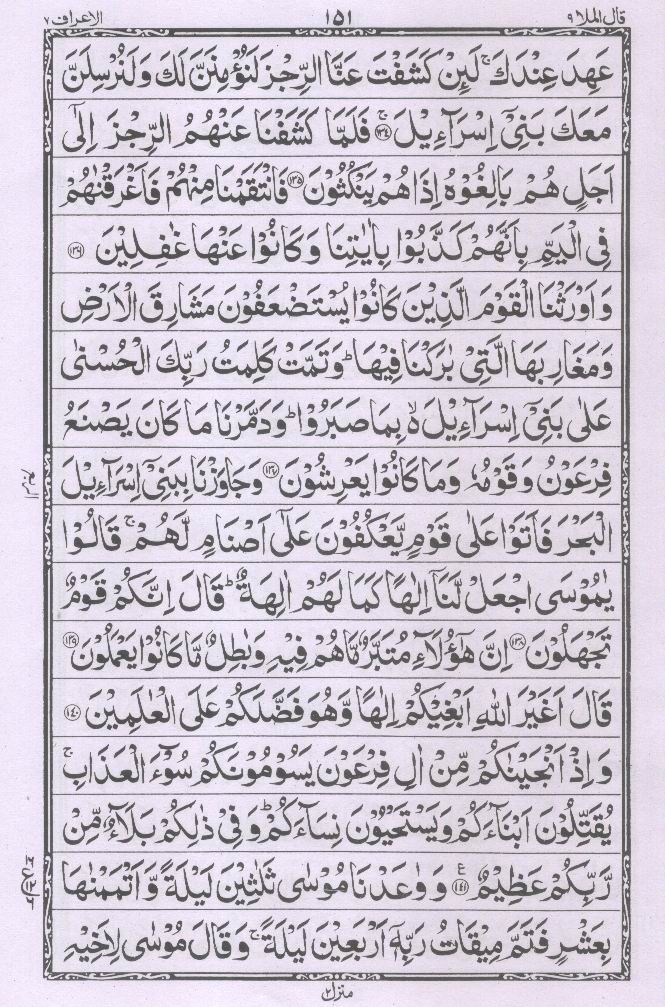 قال الملا ٩ ١٥١ الاعراف ٧
عَهِدَ عِنْدَكَ ۚ لَئِنْ كَشَفْتَ عَنَّا الرِّجْزَ لَنُؤْمِنَنَّ لَكَ وَلَنُرْسِلَنَّ
مَعَكَ بَنِیْۤ اِسْرَآءِیْلَ ۚ﴿۱۳۴﴾ فَلَمَّا كَشَفْنَا عَنْهُمُ الرِّجْزَ اِلٰۤی
اَجَلٍ هُمْ بَالِغُوْهُ اِذَا هُمْ یَنْكُثُوْنَ ﴿۱۳۵﴾ فَانْتَقَمْنَا مِنْهُمْ فَاَغْرَقْنٰهُمْ
فِی الْیَمِّ بِاَنَّهُمْ كَذَّبُوْا بِاٰیٰتِنَا وَكَانُوْا عَنْهَا غٰفِلِیْنَ ﴿۱۳۶﴾
وَاَوْرَثْنَا الْقَوْمَ الَّذِیْنَ كَانُوْا یُسْتَضْعَفُوْنَ مَشَارِقَ الْاَرْضِ
وَمَغَارِبَهَا الَّتِیْ بٰرَكْنَا فِیْهَا ؕ وَتَمَّتْ كَلِمَتُ رَبِّكَ الْحُسْنٰی
عَلٰی بَنِیْۤ اِسْرَآءِیْلَ ۙ۬ بِمَا صَبَرُوْا ؕ وَدَمَّرْنَا مَا كَانَ یَصْنَعُ
فِرْعَوْنُ وَقَوْمُهٗ وَمَا كَانُوْا یَعْرِشُوْنَ ﴿۱۳۷﴾ وَجَاوَزْنَا بِبَنِیْۤ اِسْرَآءِیْلَ
الْبَحْرَ فَاَتَوْا عَلٰی قَوْمٍ یَّعْكُفُوْنَ عَلٰۤی اَصْنَامٍ لَّهُمْ ۚ قَالُوْا
یٰمُوْسَی اجْعَلْ لَّنَاۤ اِلٰهًا كَمَا لَهُمْ اٰلِهَةٌ ؕ قَالَ اِنَّكُمْ قَوْمٌ
تَجْهَلُوْنَ ﴿۱۳۸﴾ اِنَّ هٰۤؤُلَآءِ مُتَبَّرٌ مَّا هُمْ فِیْهِ وَبٰطِلٌ مَّا كَانُوْا یَعْمَلُوْنَ ﴿۱۳۹﴾
قَالَ اَغَیْرَ اللّٰهِ اَبْغِیْكُمْ اِلٰهًا وَّهُوَ فَضَّلَكُمْ عَلَی الْعٰلَمِیْنَ ﴿۱۴۰﴾
وَاِذْ اَنْجَیْنٰكُمْ مِّنْ اٰلِ فِرْعَوْنَ یَسُوْمُوْنَكُمْ سُوْٓءَ الْعَذَابِ ۚ
یُقَتِّلُوْنَ اَبْنَآءَكُمْ وَیَسْتَحْیُوْنَ نِسَآءَكُمْ ؕ وَفِیْ ذٰلِكُمْ بَلَآءٌ مِّنْ
رَّبِّكُمْ عَظِیْمٌ ﴿۱۴۱﴾ وَوٰعَدْنَا مُوْسٰی ثَلٰثِیْنَ لَیْلَةً وَّاَتْمَمْنٰهَا
بِعَشْرٍ فَتَمَّ مِیْقَاتُ رَبِّهٖۤ اَرْبَعِیْنَ لَیْلَةً ۚ وَقَالَ مُوْسٰی لِاَخِیْهِ
منزل ٢